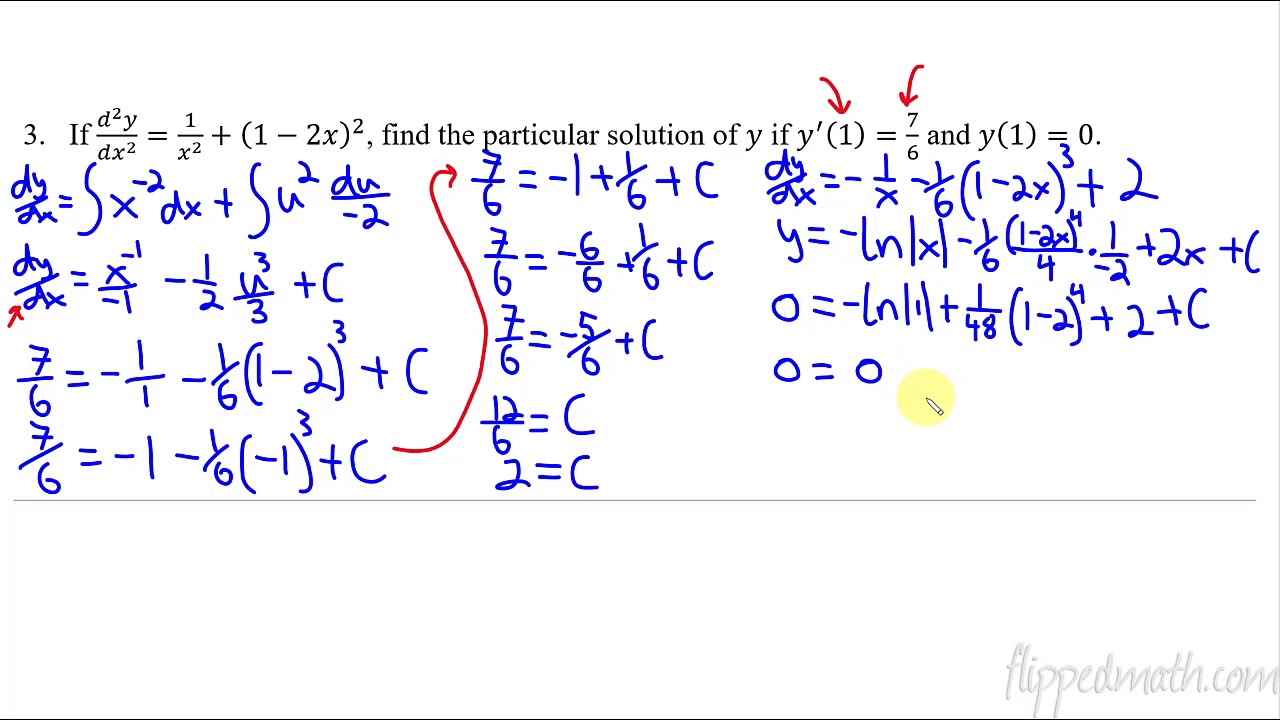 3. If d²y/dx² = 1/x² + (1 − 2x)², find the particular solution of y if y′(1) = 7/6 and y(1) = 0.
dy/dx = ∫ x⁻² dx + ∫ u² du/-2
dy/dx = x⁻¹/-1 - 1/2 u³/3 + C
7/6 = - 1/1 - 1/6 (1 - 2)³ + C
7/6 = -1 - 1/6 (-1)³ + C
7/6 = -1 + 1/6 + C
7/6 = -6/6 + 1/6 + C
7/6 = -5/6 + C
12/6 = C
2 = C
dy/dx = - 1/x - 1/6 (1-2x)³ + 2
y = -ln|x| - 1/6 (1-2x)⁴/4 · 1/-2 + 2x + C
0 = -ln|1| + 1/48 (1-2)⁴ + 2 + C
0 = 0
flippedmath.com